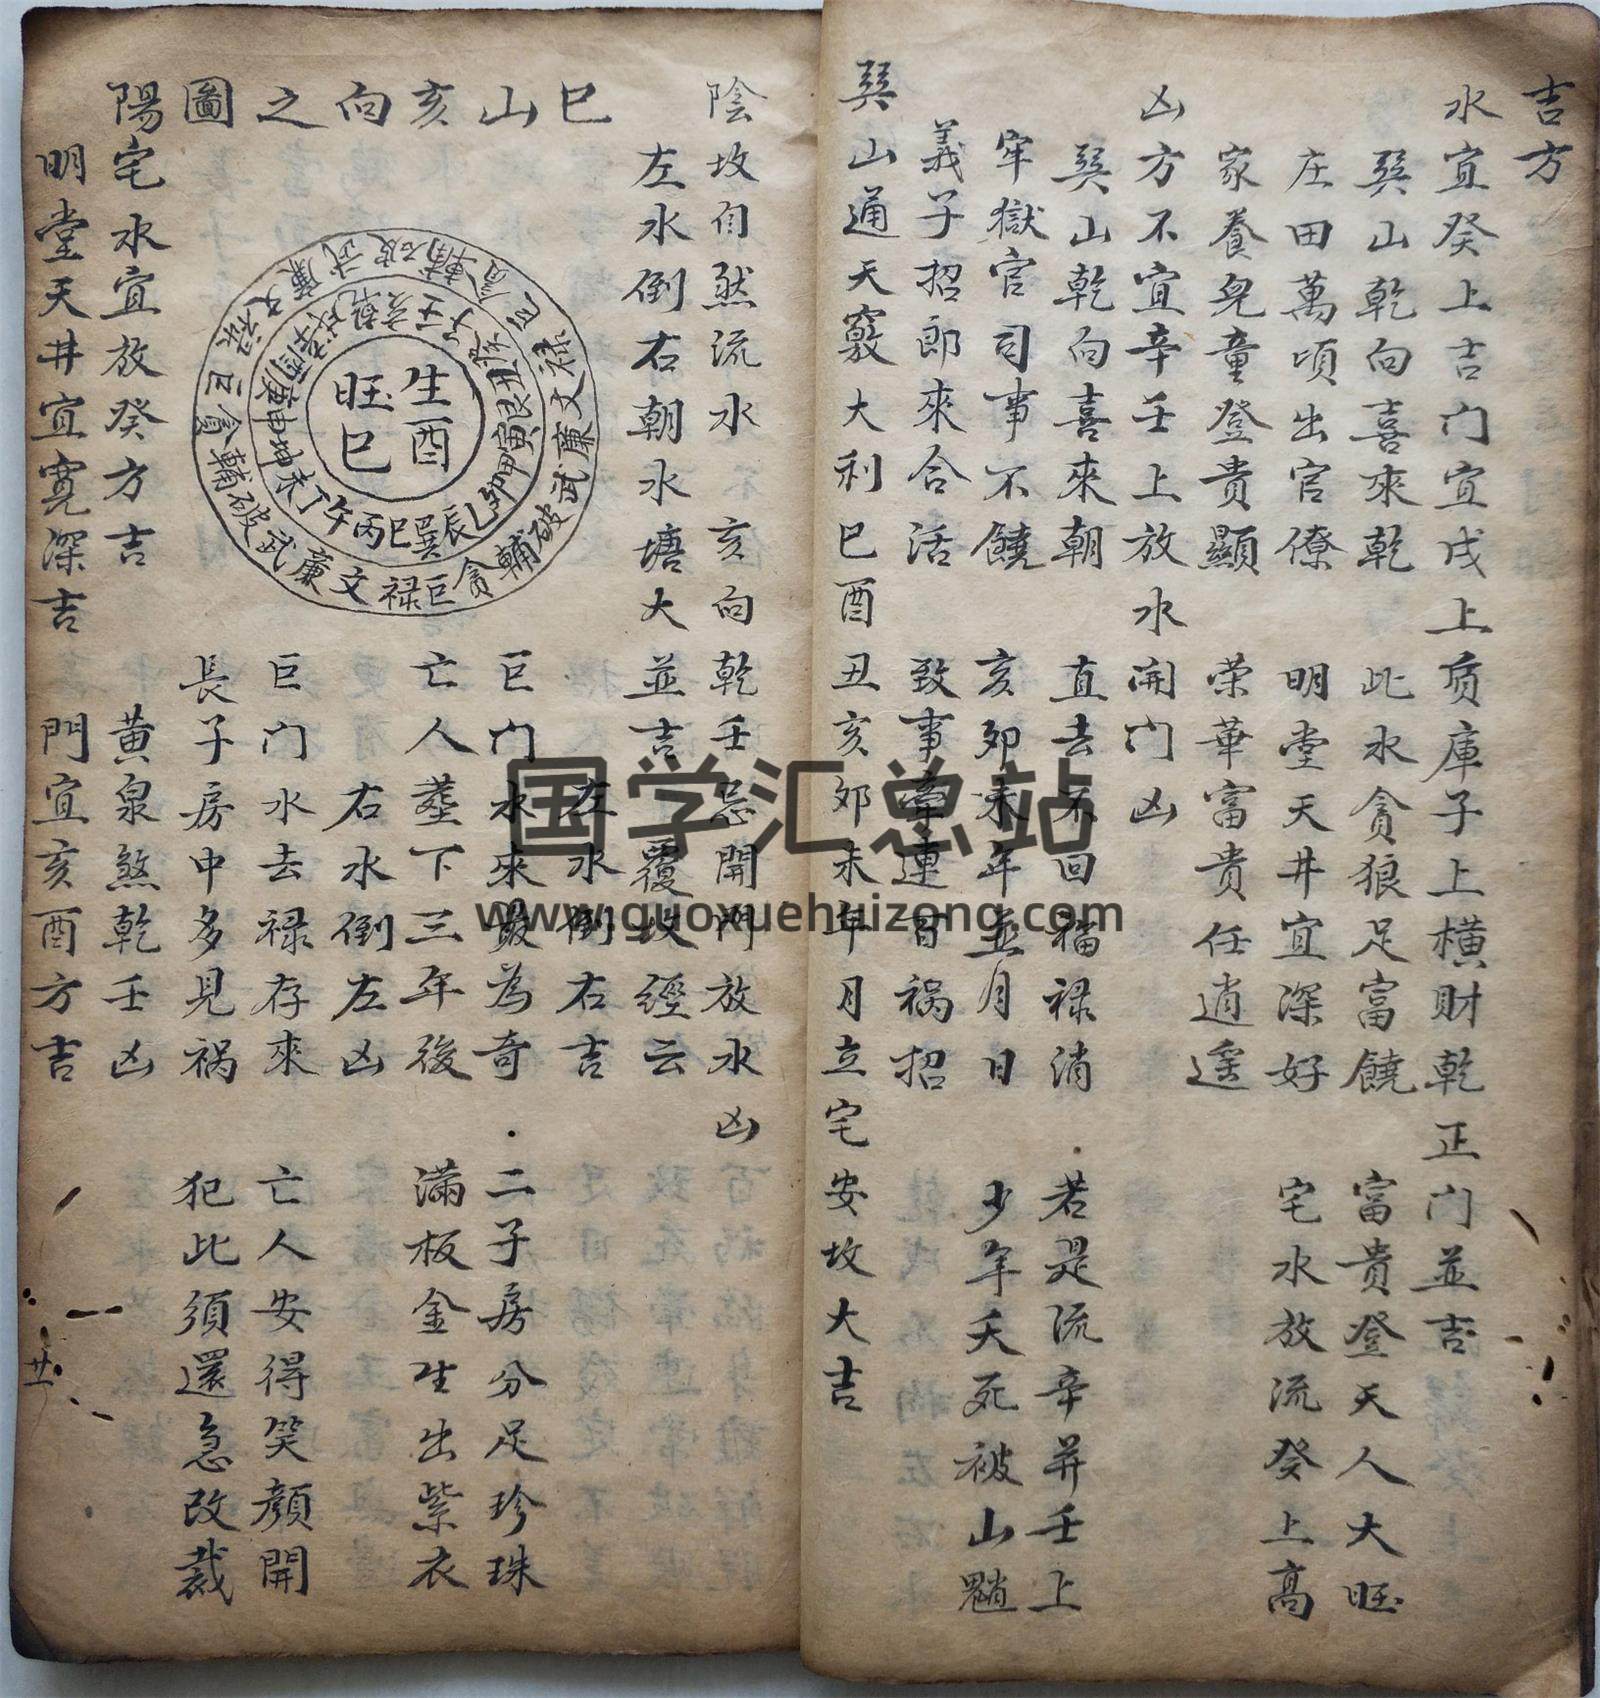 吉方
水宜癸上吉门宜戌上质庫子上横財乾正门並吉
巽山乾向喜來乾 此水貪狼足富饒 富貴登天人大旺
庄田萬頃出官僚 明堂天井宜深好 宅水放流癸上高
家養兒童登貴顯 荣華富貴任逍遥
凶方不宜辛壬上放水開门凶
巽山乾向喜來朝 直去不回福禄消 若是流辛并壬上
牢獄官司事不饒 亥卯未年並月日 少年夭死被山魈
義子招郎來合活 致事牽連百祸招
巽山通天竅大利巳酉丑亥卯未年月立宅安坟大吉
陰坟自然流水 亥向乾壬忌開門放水凶
左水倒右朝水塘大並吉 覆坟經云
左水倒右吉
巨门水來最為奇 二子房分足珍珠
亡人塟下三年後 滿板金生出紫衣
右水倒左凶
巨门水去禄存來 亡人安得笑顏開
長子房中多見祸 犯此須還急改裁
巳山亥向之圖
生酉
旺巳
壬亥乾戌辛酉庚申坤未丁午丙巳巽辰乙卯甲寅艮丑癸子
貪巨禄文廉武破輔貪巨禄文廉武破輔貪巨禄文廉武破輔
陽宅水宜放癸方吉 黄泉煞乾壬凶
明堂天井宜寬深吉 門宜亥酉方吉
廿一
国学汇总站
www.guoxuehuizong.com